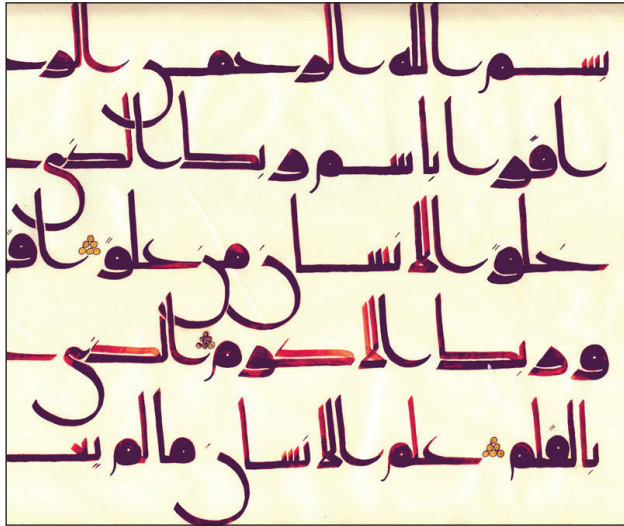 بسم الله الرحمن الر
اقرا باسم ربك الذى
خلق الانسان من علق اقر
وربك الاكرم الذى
بالقلم علم الانسان ما لم يعـ